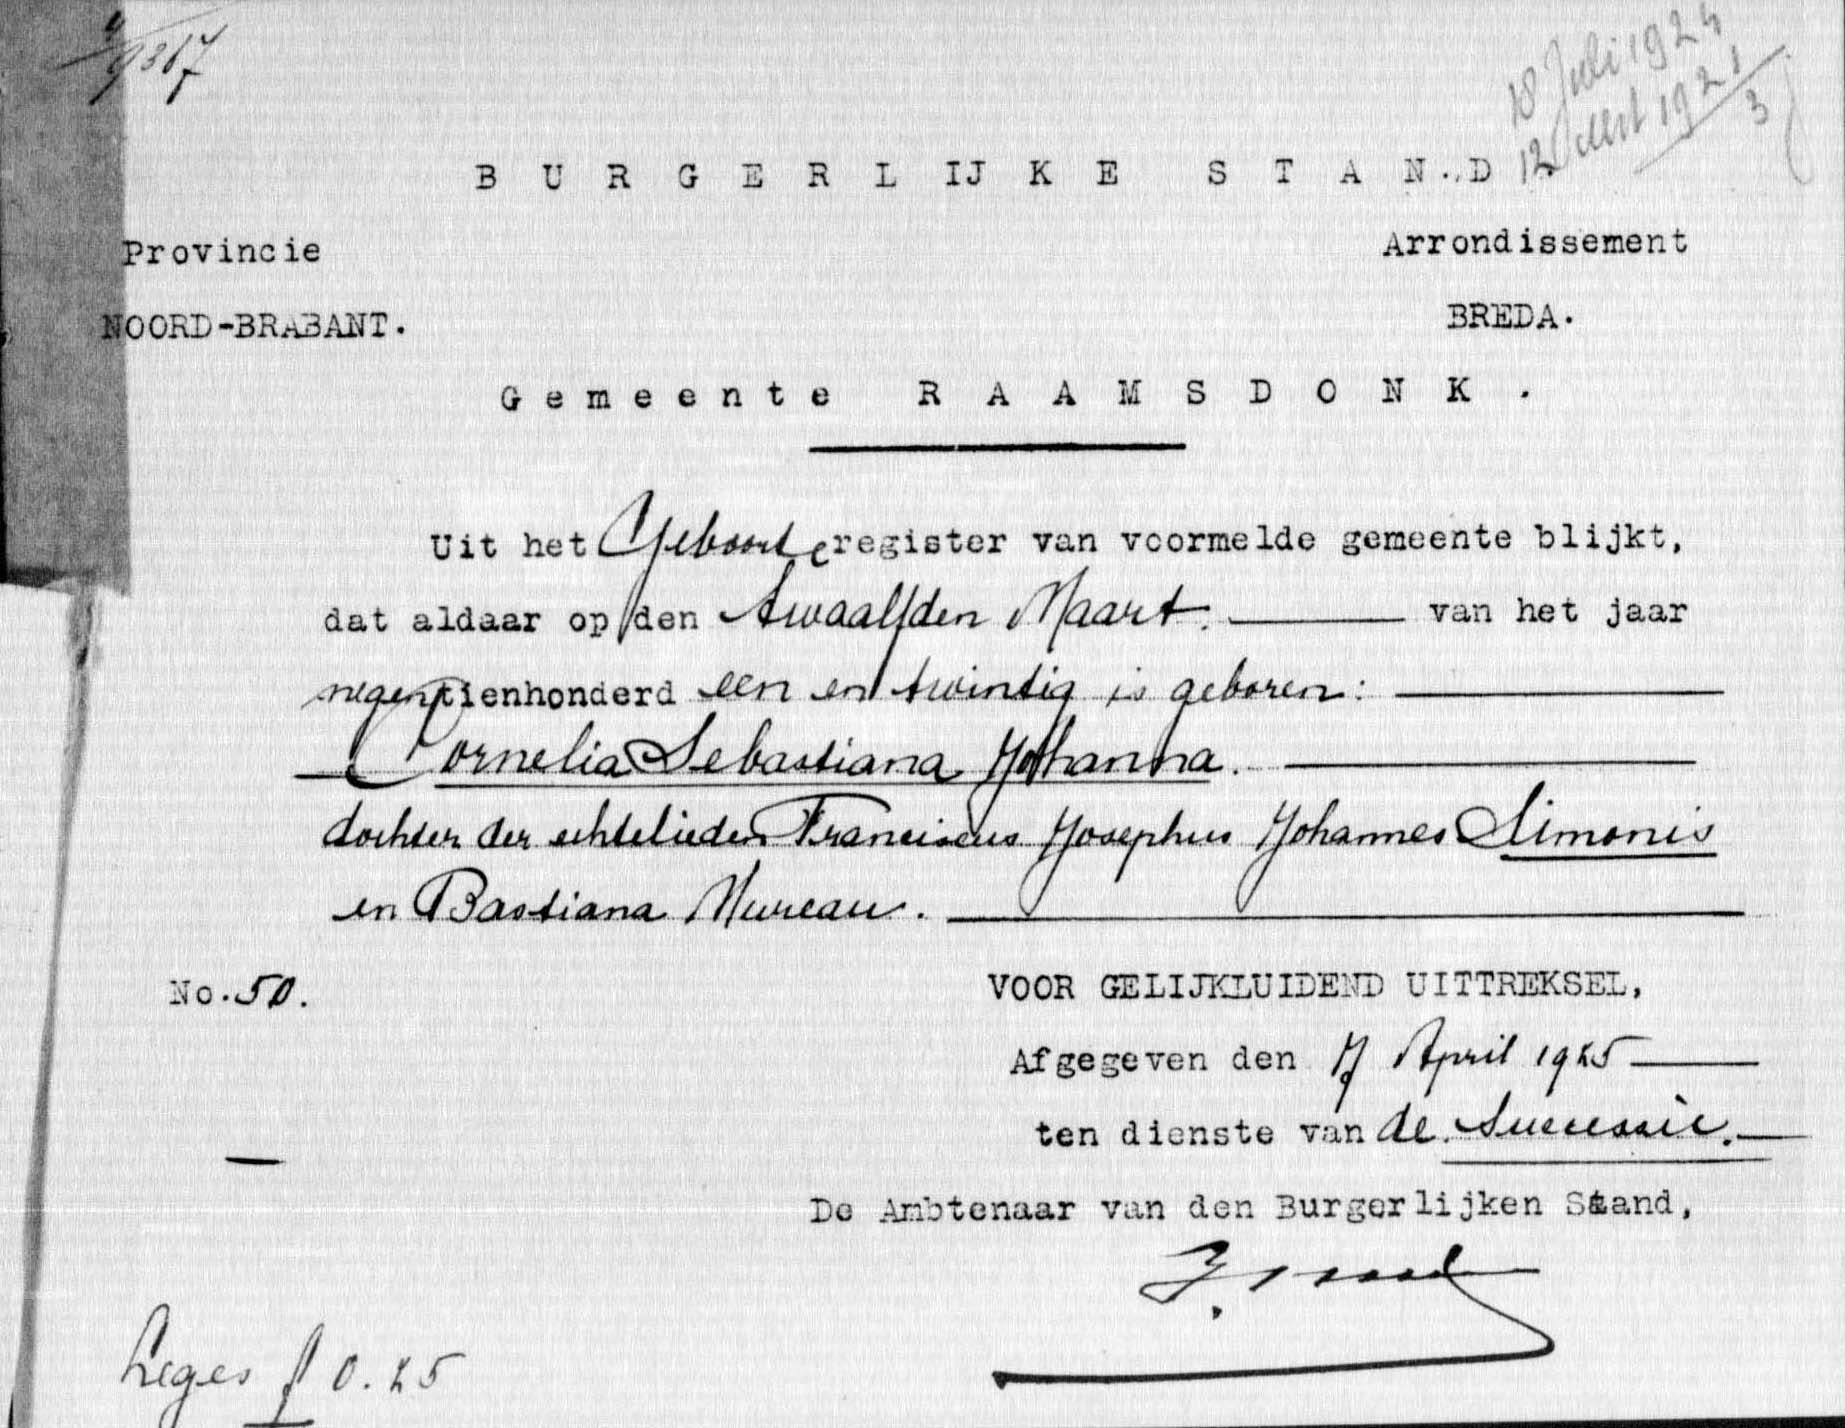 4/9367
18 Juli 1924
12 Mrt 1921
3
BURGERLIJKE STAND
Provincie
Arrondissement
NOORD-BRABANT.
BREDA.
Gemeente RAAMSDONK.
Uit het Geboorteregister van voormelde gemeente blijkt,
dat aldaar op den twaalfden Maart. van het jaar
negentienhonderd een en twintig is geboren:
Cornelia Sebastiana Johanna.
dochter der echtelieden Franciscus Josephus Johannes Simonis
en Bastiana Mureau.
No. 50.
VOOR GELIJKLUIDEND UITTREKSEL,
Afgegeven den 7 April 1925
ten dienste van de Successie.
De Ambtenaar van den Burgerlijken Stand,
Leges f 0.25